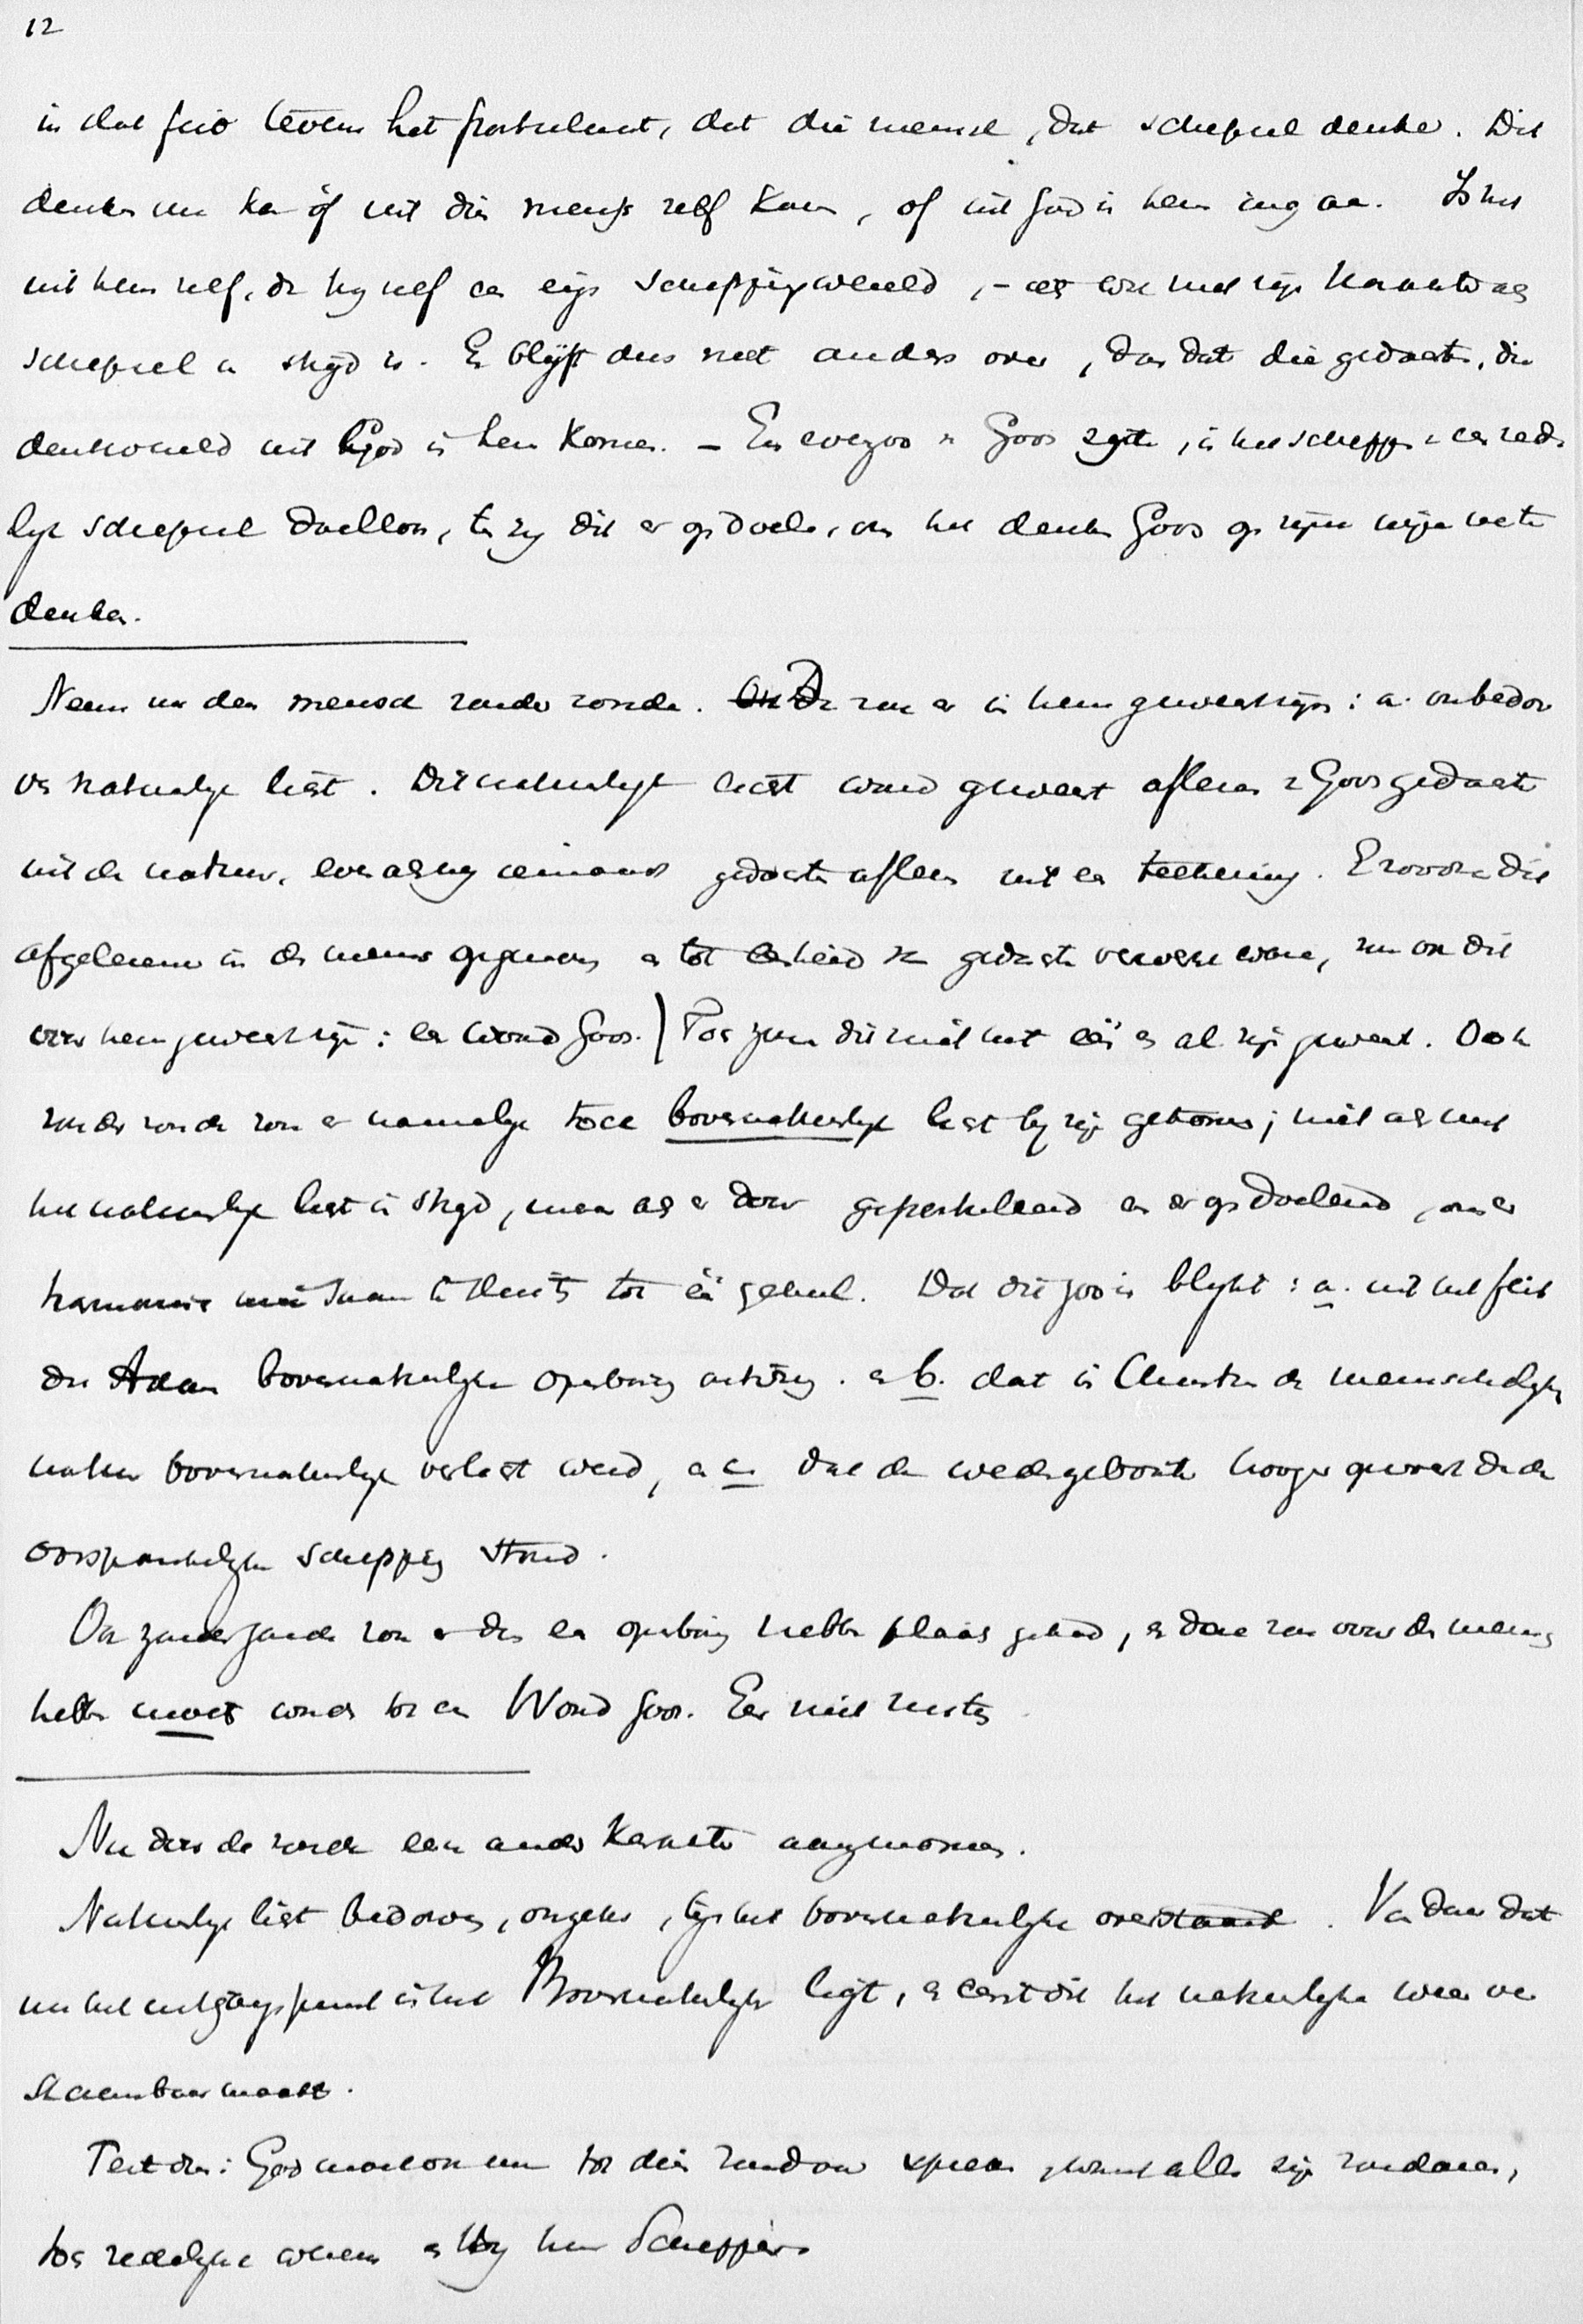 12
in dat feit tevens het postulaat, dat die mensch, dat schepsel denke. Dit
denken nu kan óf uit dien mensch zelf komen, of uit God in hem ingaan. Is het
uit hem zelf, dan hy zelf een eigen scheppingswereld, – met zyn karakter als
schepsel in stryd is. Er blyft dus niet anders over, dan dat die gedachte, die
denkwereld uit God in hem komen. – En evenzoo is Gods , in het scheppen van een rede-
lyk schepsel doelloos, tenzy dit er op doele, om het denken Gods op zyne wyze na te
denken.
Neem nu den mensch zonder zonde. Dan zou er in hem geweest zyn: a. onbedor
ven natuurlyk licht. Dit natuurlyk licht ware geweest aflezen van Gods gedachte
uit de natuur, even als wy iemands gedachte aflezen uit een teekening. En voor zoover dit
afgelezene in den mensch opgenomen en tot eenheid van gedachte verwerkt ware, zou ook dit
voor hem geweest zyn: een Woord Gods. | Toch zou dit niet het één en al zyn geweest. Ook
zonder zonde zou er namelyk toch bovennatuurlyk licht by zyn gekomen; niet als met
het natuurlyk licht in stryd, maar als er door gepostuleerd en er op doelend, om er
harmonie mee saam te tot één geheel. Dat dit zoo is blykt: a. uit het feit
dat Adam bovennatuurlyke openbaring ontving. en b. dat in Christus de menschelyke
natuur bovennatuurlyk verlicht werd, en c. dat de wedergeboorte hooger dan de
oorspronkelyke schepping stond.
Ook zonder zonde zou er dus een openbaring hebben plaats gehad, en deze zou voor den mensch
hebben moeten worden tot een Woord Gods. Een niet rusten
Nu door de zonde een ander karakter aangenomen.
Natuurlyk licht bedorven, , tegen het bovennatuurlyke overstaand. Van daar dat
nu het uitgangspunt in het Bovennatuurlyke ligt, en eerst dit het natuurlyke weer ver
staanbaar maakt.
Feit dus: God moet ook nu tot den zondaar spreken, want allen zyn zondaren,
toch redelyke wezens en Hy hun Schepper.